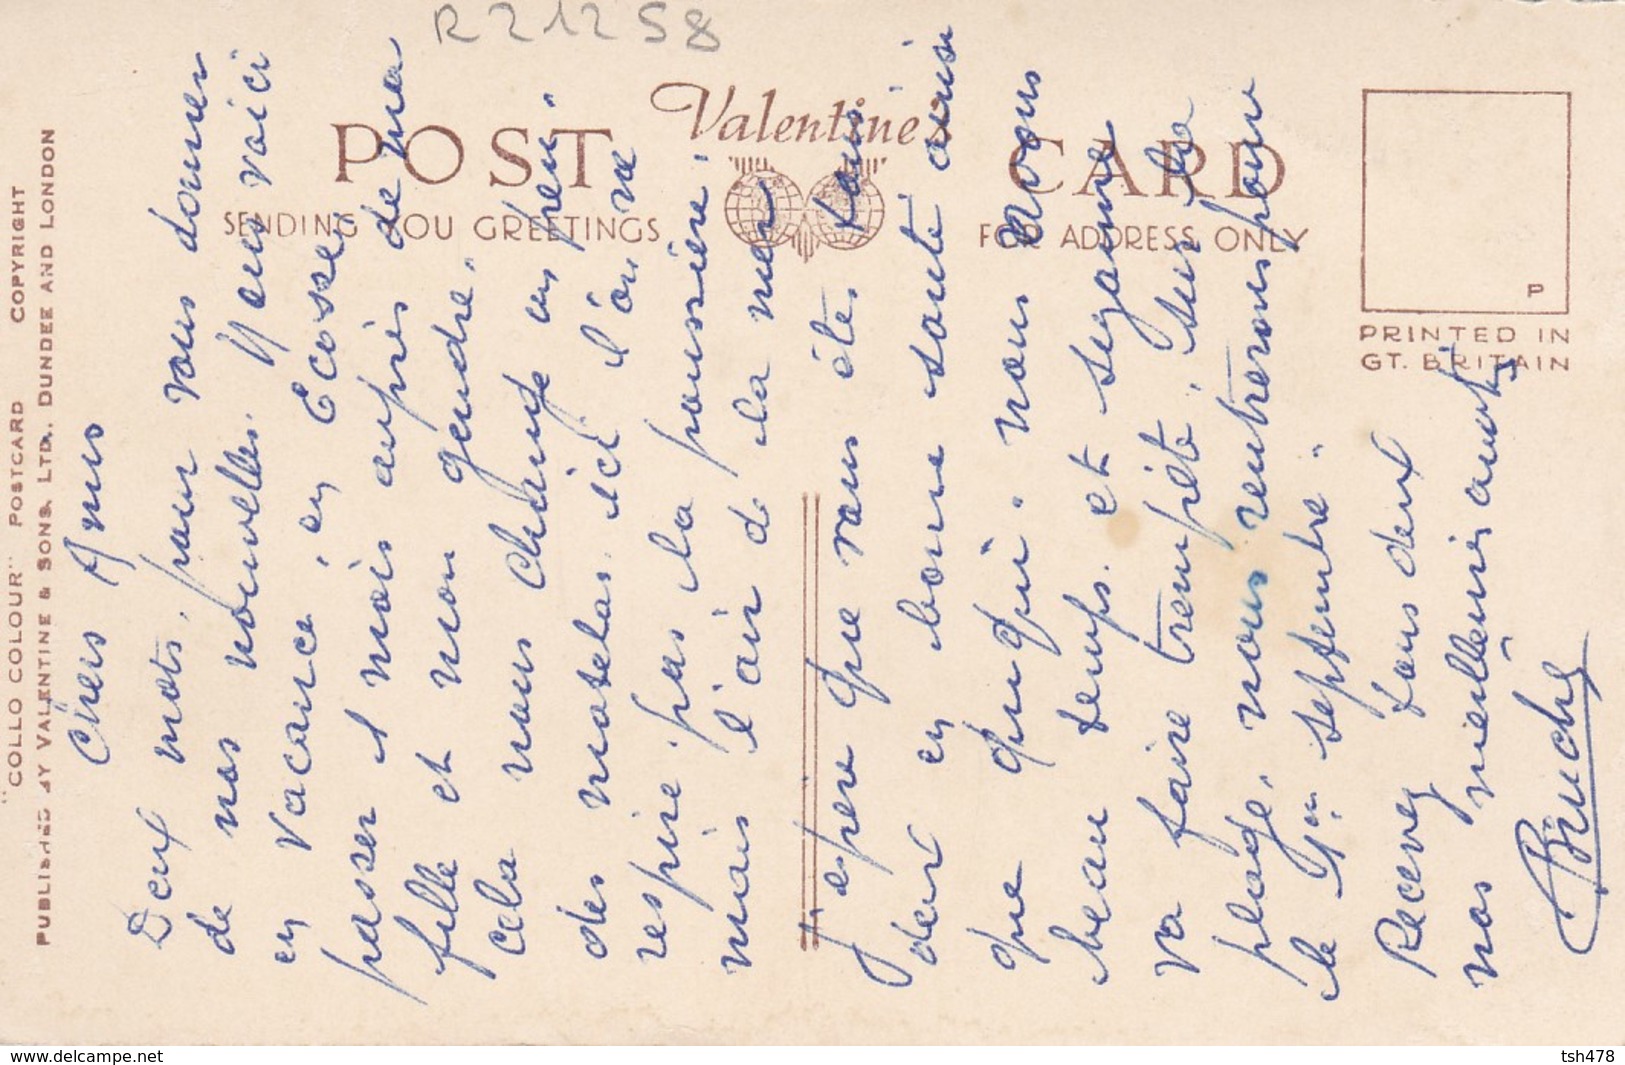 R 21258
Valentine's
POST CARD
SENDING YOU GREETINGS
FOR ADDRESS ONLY
P
PRINTED IN
GT. BRITAIN
"COLLO COLOUR" POSTCARD COPYRIGHT
PUBLISHED BY VALENTINE & SONS, LTD., DUNDEE AND LONDON
Chers Amis
Deux mots, pour vous donner
de nos nouvelles. Nous voici
en vacance, en Ecosse,
passer 1 mois auprès de ma
fille et mon gendre.
Cela nous change un peu.
des matelas. ici l'on ne
respire pas la poussière.
mais l'air de la mer
J'espère que vous êtes tous
deux en bonne santé ainsi
que Ququi. nous avons
beau temps. et Suzanne
va faire trempète, sur la
plage, nous rentrerons pour
le 1er septembre.
Recevez tous deux
nos meilleures amitiés
www.delcampe.net
tsh478